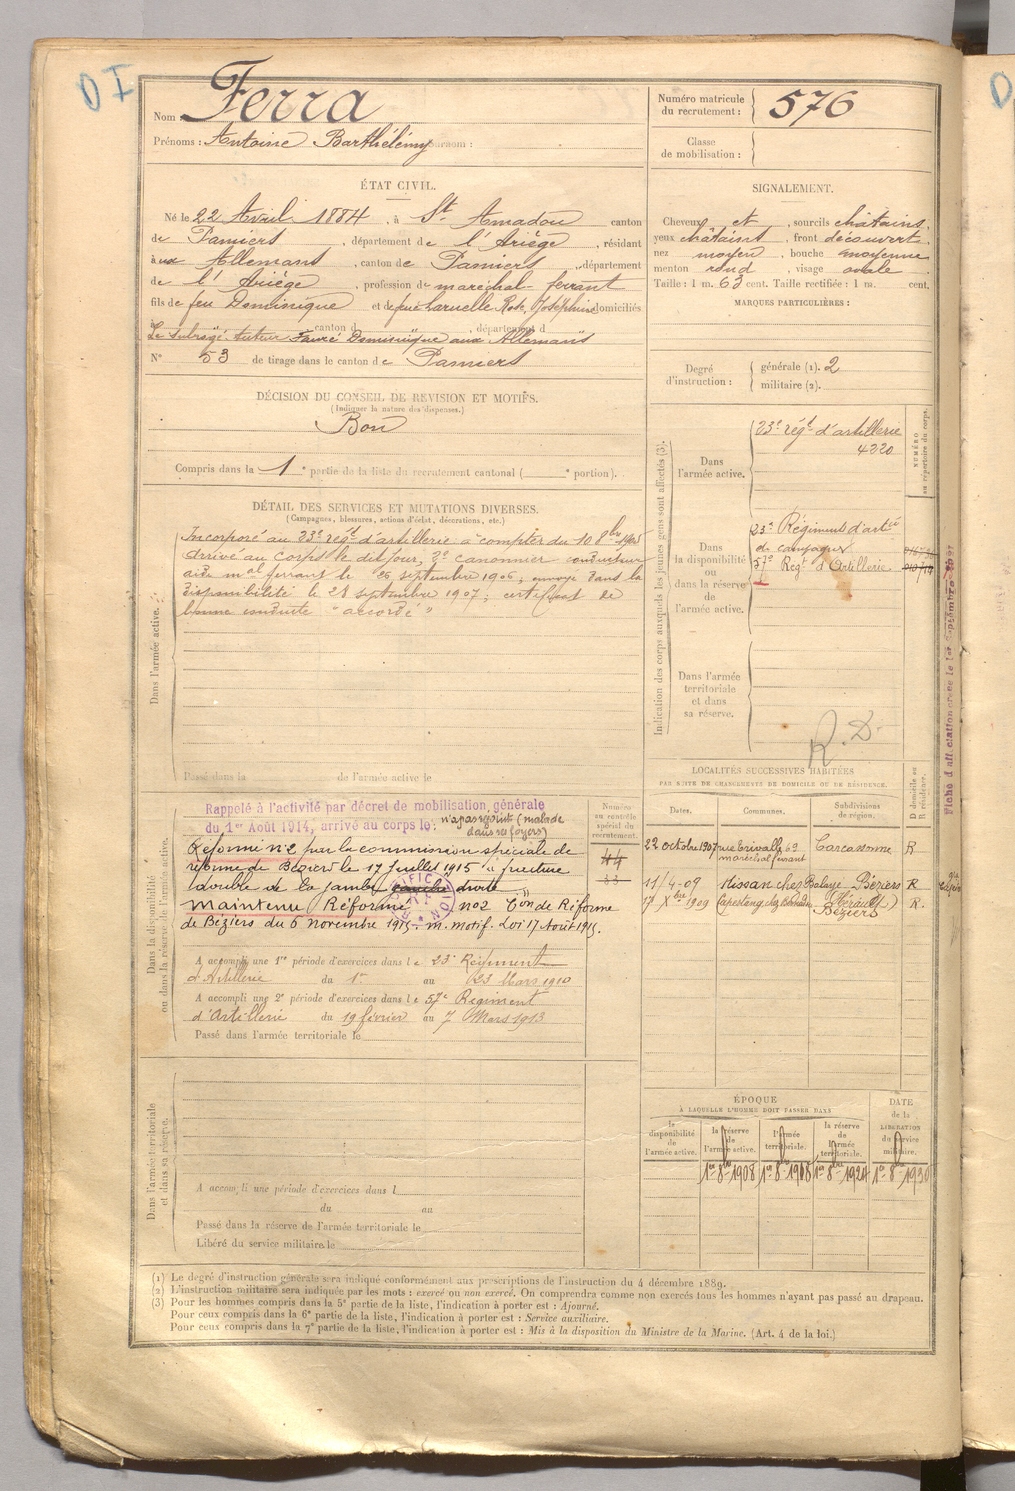 D I
Nom : Ferra
Prénoms : Antoine Barthélémy surnom :
Numéro matricule du recrutement : 576
Classe de mobilisation :
ÉTAT CIVIL.
Né le 22 Avril 1884, à St Amadou canton
de Pamiers, département de l'Ariège, résidant
aux Allemans, canton de Pamiers, département
de l'Ariège, profession de maréchal-ferrant
fils de feu Dominique et de feue Laruelle Rose, Joséphine domiciliés
à canton d , département d
Le subrogé tuteur Faure Dominique aux Allemans
N° 53 de tirage dans le canton de Pamiers
SIGNALEMENT.
Cheveux et , sourcils châtains,
yeux châtains , front découvert,
nez moyen , bouche moyenne
menton rond , visage ovale
Taille : 1 m. 63 cent. Taille rectifiée : 1 m. cent.
MARQUES PARTICULIÈRES :
Degré d'instruction : générale (1). 2
militaire (2).
DÉCISION DU CONSEIL DE REVISION ET MOTIFS.
(Indiquer la nature des dispenses.)
Bon
Compris dans la 1e partie de la liste du recrutement cantonal ( e portion).
DÉTAIL DES SERVICES ET MUTATIONS DIVERSES.
(Campagnes, blessures, actions d'éclat, décorations, etc.)
Dans l'armée active.
Incorporé au 23e régt d'artillerie à compter du 10 8bre 1905
Arrivé au Corps le dit jour, 2e canonnier conducteur
aide mal ferrant le 26 septembre 1906; envoyé dans la
disponibilité le 28 septembre 1907; certificat de
bonne conduite "accordé"
Passé dans la de l'armée active le
Indication des corps auxquels les jeunes gens sont affectés (3).
NUMÉRO au répertoire du corps.
Dans l'armée active.
23e régt d'artillerie
4220
Dans la disponibilité ou dans la réserve de l'armée active.
23e Régiment d'artie
de campagne
57e Regt d'Artillerie
Dans l'armée territoriale et dans sa réserve.
R.D.
LOCALITÉS SUCCESSIVES HABITÉES
PAR SUITE DE CHANGEMENTS DE DOMICILE OU DE RÉSIDENCE.
Dates. Communes. Subdivisions de région. Domicile ou Résidence.
22 octobre 1907 rue Trivalle 69 maréchal ferrant Carcassonne R
11/4-09 Nissan chez Balaye Béziers R
17 Xbre 1909 Capestang (Hérault) Béziers R.
Dans la disponibilité ou dans la réserve de l'armée active.
Numéro au contrôle spécial du recrutement.
Rappelé à l'activité par décret de mobilisation générale
du 1er Août 1914, arrivé au corps le : n'a pas rejoint (malade
dans ses foyers)
Réformé n°2 par la commission spéciale de
réforme de Béziers le 17 Juillet 1915 à fracture
double de la jambe gauche droite
Maintenu Réformé no2 Con de Réforme
de Béziers du 6 novembre 1915. m. motif. Loi 17 Août 1915.
A accompli une 1re période d'exercices dans le 23e Régiment
d'Artillerie du 1er au 23 Mars 1910
A accompli une 2e période d'exercices dans le 57e Regiment
d'Artillerie du 19 février au 7 Mars 1913
Passé dans l'armée territoriale le
Dans l'armée territoriale et dans sa réserve.
A accompli une période d'exercices dans l
du au
Passé dans la réserve de l'armée territoriale le
Libéré du service militaire le
ÉPOQUE
À LAQUELLE L'HOMME DOIT PASSER DANS
la disponibilité de l'armée active.
la réserve de l'armée active.
l'armée territoriale.
la réserve de l'armée territoriale.
DATE de la LIBÉRATION du service militaire.
1er 8bre 1908 1er 8bre 1918 1er 8bre 1924 1er 8bre 1930
(1) Le degré d'instruction générale sera indiqué conformément aux prescriptions de l'instruction du 4 décembre 1889.
(2) L'instruction militaire sera indiquée par les mots : exercé ou non exercé. On comprendra comme non exercés tous les hommes n'ayant pas passé au drapeau.
(3) Pour les hommes compris dans la 5e partie de la liste, l'indication à porter est : Ajourné.
Pour ceux compris dans la 6e partie de la liste, l'indication à porter est : Service auxiliaire.
Pour ceux compris dans la 7e partie de la liste, l'indication à porter est : Mis à la disposition du Ministre de la Marine. (Art. 4 de la loi.)